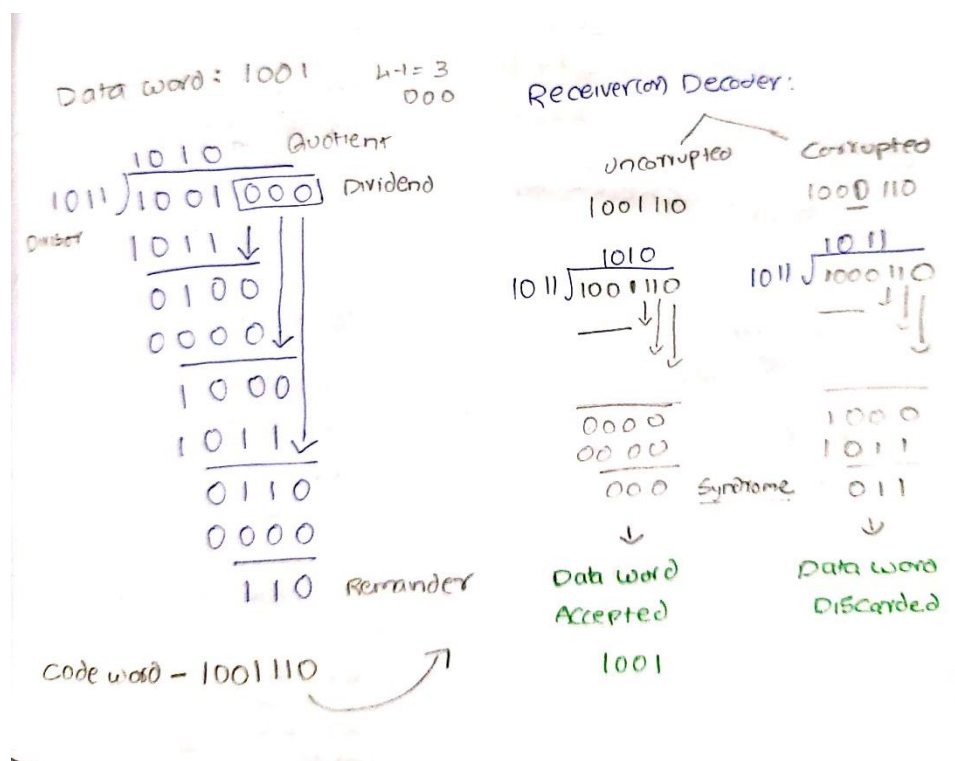 Data word: 1001
L-1 = 3
000
1010 Quotient
1011 ) 1001 000 Dividend
Divisor
1011
0100
0000
1000
1011
0110
0000
110 Remander
Code word - 1001110
Receiver(or) Decoder:
Uncorrupted
1001110
1010
1011 ) 1001110
0000
0000
000 Syndrome
Data word
Accepted
1001
Corrupted
1000110
1011
1011 ) 1000110
1000
1011
011
Data word
Discarded